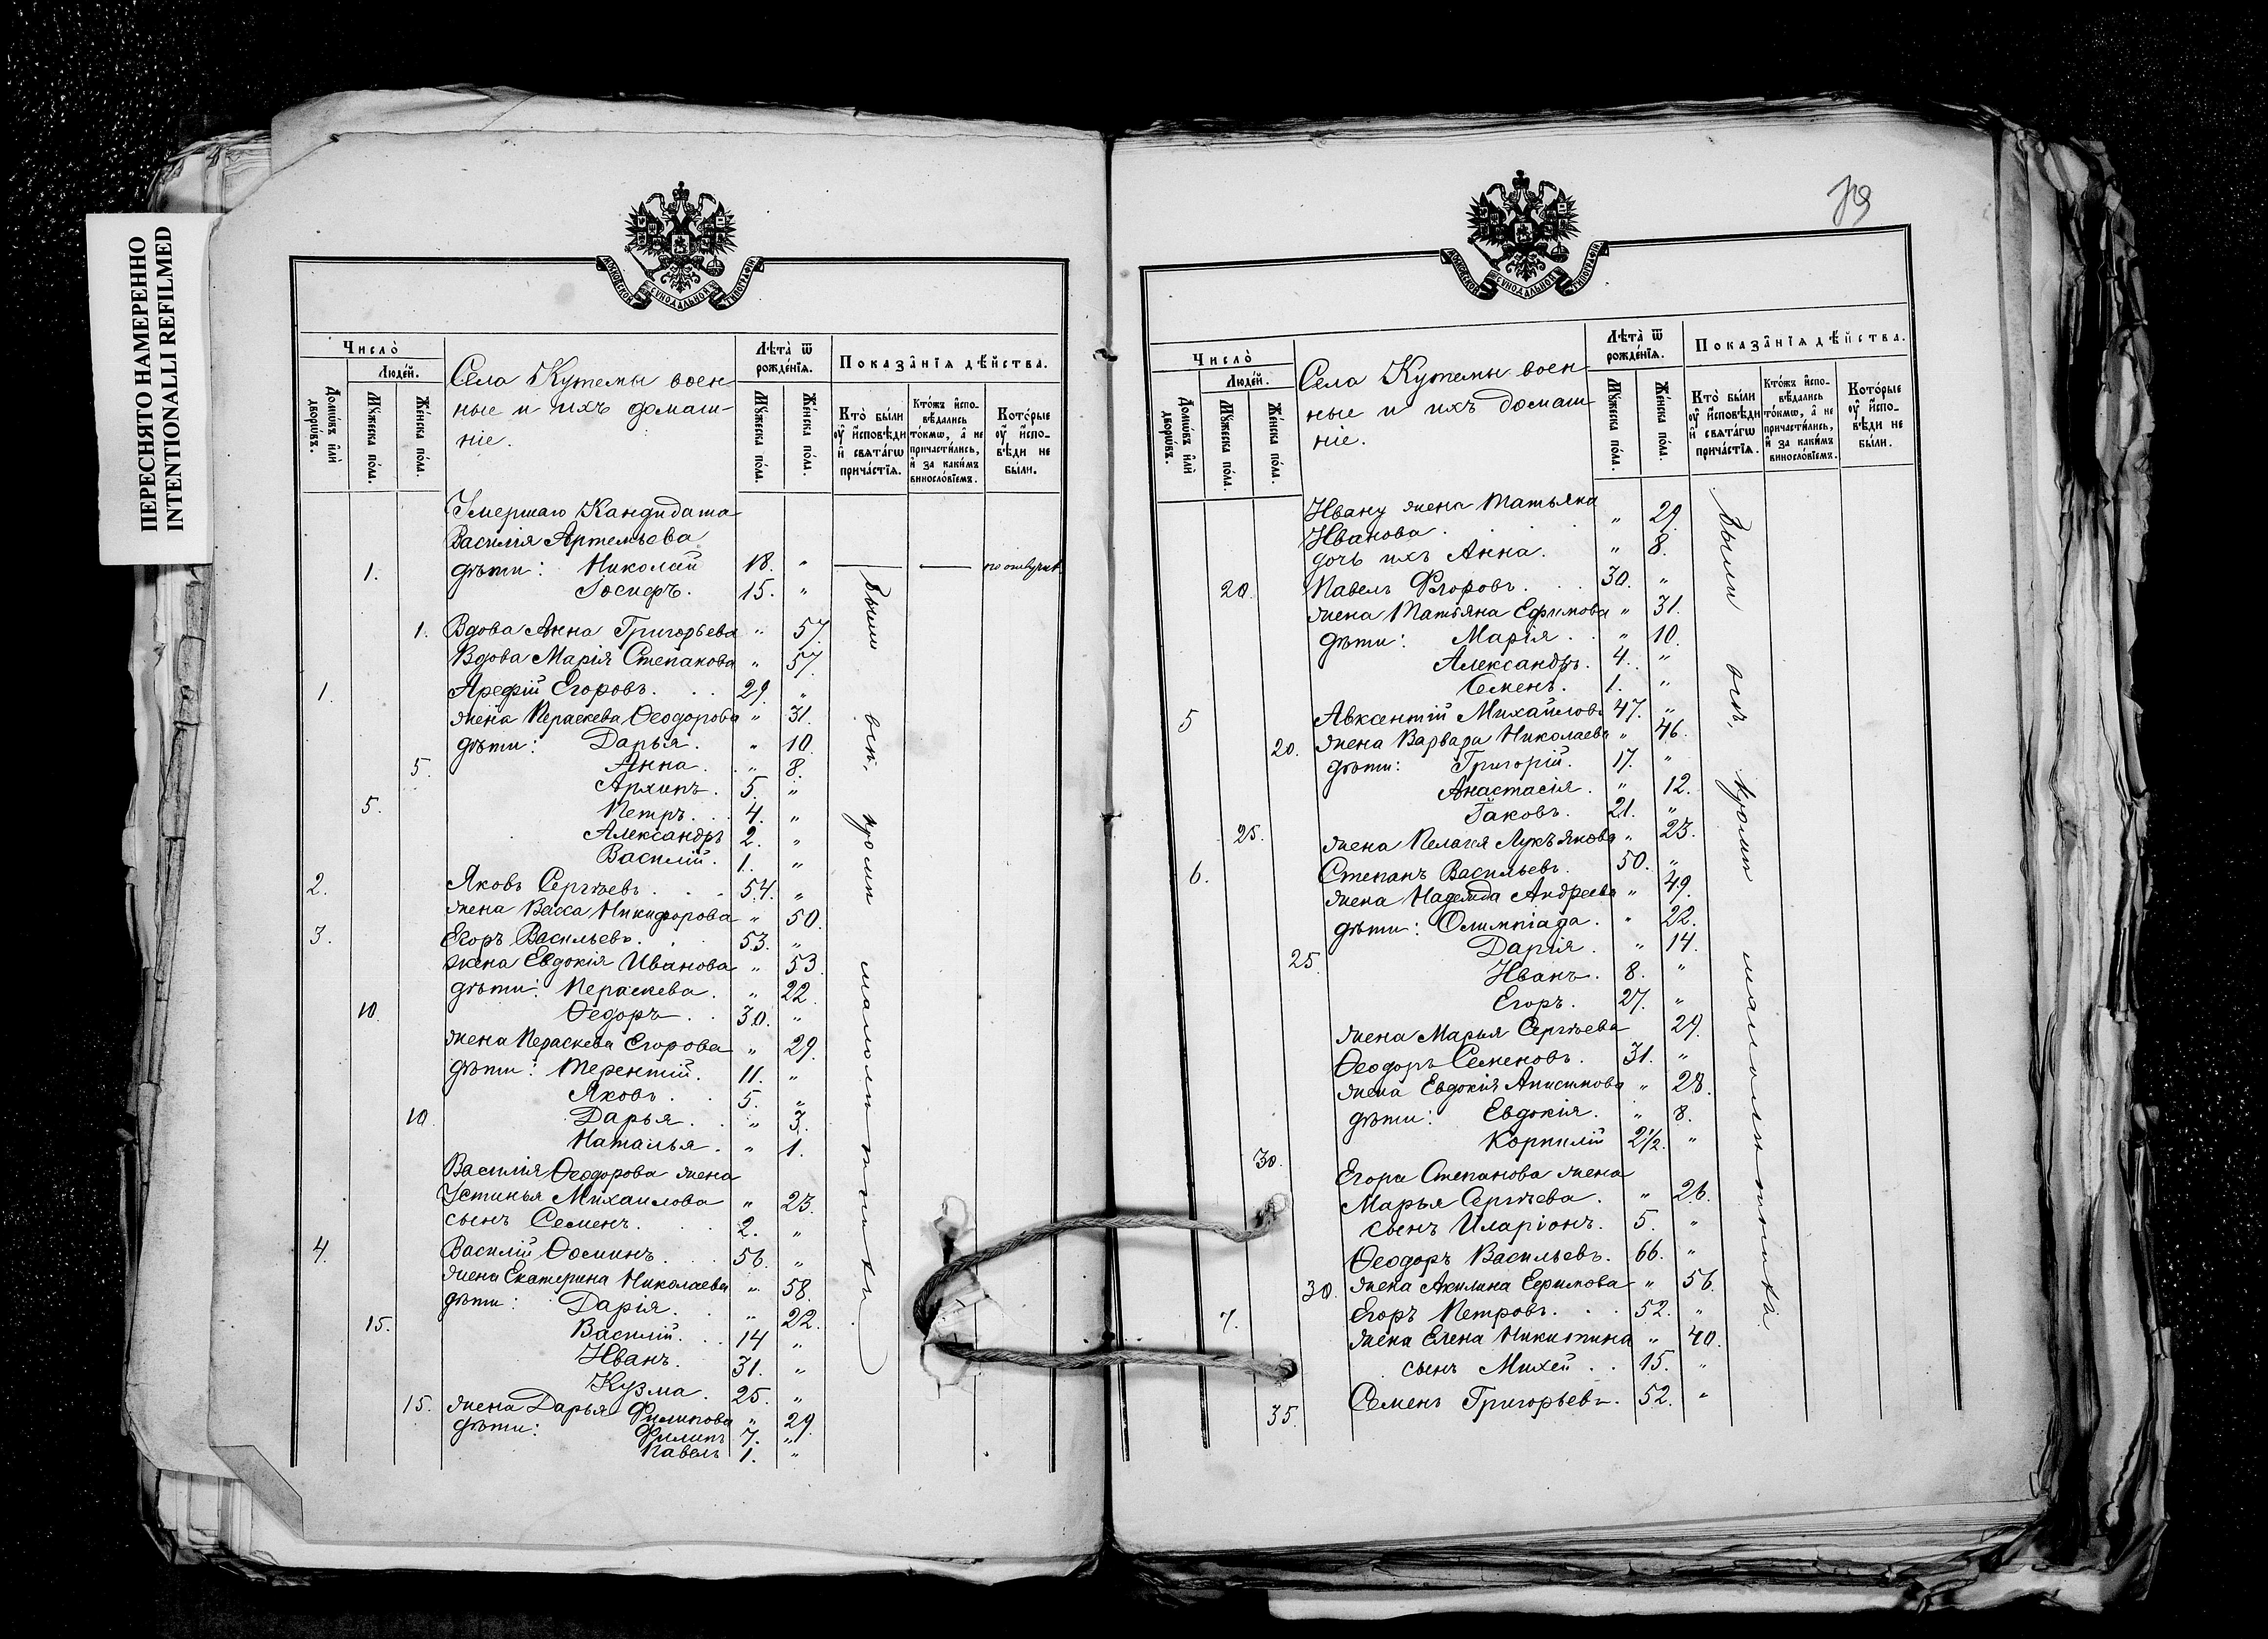 ПЕРЕСНЯТО НАМЕРЕННО
INTENTIONALLI REFILMED
МОСКОВСКОЙ СѴНОДАЛЬНОЙ ТИПОГРАФІИ
Число̀
Люде́й.
Домѡ́въ и҆лѝ дворѡ́въ.
Мꙋ́жеска по́ла.
Же́нска по́ла.
Села Кутемы воен-
ные и ихъ домаш-
ніе.
Лѣ́та ѿ рожде́нїѧ.
Мꙋ́жеска по́ла.
Же́нска по́ла.
Показа̑нїѧ дѣ́йства.
Кто̀ бы́ли ᲂу҆ и҆сповѣ́ди и҆ свѧта́гѡ прича́стїѧ.
Кто́жъ и҆спо-вѣ́дались то́кмѡ, а҆ не причасти́лись, и҆ за каки́мъ виносло́вїемъ.
Кото́рые ᲂу҆ и҆спо-вѣ́ди не бы́ли.
Умершаго Кандидата
Василія Артемьева
1. дѣти: Николай 18. "
Іосифъ. 15. "
1. Вдова Анна Григорьева " 57.
Вдова Марія Степанова " 57.
1. Арефій Егоровъ. 29. "
жена Пераскева Ѳеодорова " 31.
дѣти: Дарья. " 10.
5. Анна. " 8.
Архипъ. 5. "
5. Петръ. 4. "
Александръ 2. "
Василій. 1. "
2. Яковъ Сергѣевъ. 54. "
жена Васса Никифорова " 50.
3. Егоръ Васильевъ. 53. "
жена Евдокія Иванова " 53.
дѣти: Пераскева. " 22.
10. Ѳедоръ. 30. "
жена Пераскева Егорова " 29.
дѣти: Терентій. 11. "
Яковъ. 5. "
10. Дарья. " 3.
Наталья. " 1.
Василія Ѳеодорова жена
Устинья Михаилова " 23.
сынъ Семенъ. 2. "
4. Василій Ѳоминъ. 56. "
жена Екатерина Николаева " 58.
дѣти: Дарія. " 22.
15. Василій. 14 "
Иванъ. 31. "
Кузма. 25. "
15. жена Дарья Филипова " 29.
дѣти: Филипъ 7. "
Павелъ 1. "
Были всѣ, кромѣ малолѣтнихъ
79
МОСКОВСКОЙ СѴНОДАЛЬНОЙ ТИПОГРАФІИ
Число̀
Люде́й.
Домѡ́въ и҆лѝ дворѡ́въ.
Мꙋ́жеска по́ла.
Же́нска по́ла.
Села Кутемы воен-
ные и ихъ домаш-
ніе.
Лѣ́та ѿ рожде́нїѧ.
Мꙋ́жеска по́ла.
Же́нска по́ла.
Показа̑нїѧ дѣ́йства.
Кто̀ бы́ли ᲂу҆ и҆сповѣ́ди и҆ свѧта́гѡ прича́стїѧ.
Кто́жъ и҆спо-вѣ́дались то́кмѡ, а҆ не причасти́лись, и҆ за каки́мъ виносло́вїемъ.
Кото́рые ᲂу҆ и҆спо-вѣ́ди не бы́ли.
Ивану жена Татьяна
Иванова. " 29.
дочь ихъ Анна. " 8.
20. Павелъ Егоровъ. 30. "
жена Татьяна Ефимова " 31.
дѣти: Марія. " 10.
Александръ. 4. "
Семенъ. 1. "
5 Авксентій Михайловъ 47. "
20. жена Варвара Николаева " 46.
дѣти: Григорій. 17. "
Анастасія. " 12.
Іаковъ. 21. "
25. жена Пелагія Лукъянова " 23.
6. Степанъ Васильевъ. 50. "
жена Надежда Андреева " 49.
дѣти: Олимпіада. " 22.
Дарія. " 14.
25. Иванъ. 8. "
Егоръ. 27. "
жена Марья Сергѣева 29.
Ѳеодоръ Семеновъ. 31. "
жена Евдокія Анисимова " 28.
дѣти: Евдокія. " 8.
Корнилій 2½. "
30. Егора Степанова жена
Марья Сергѣева. " 26.
сынъ Иларіонъ. 5. "
Ѳеодоръ Васильевъ. 66. "
30. жена Акилина Ефимова " 56.
7. Егоръ Петровъ. 52. "
жена Елена Никитина " 40.
сынъ Михей. 15. "
35. Семенъ Григорьевъ. 52. "
Были всѣ, кромѣ малолѣтнихъ